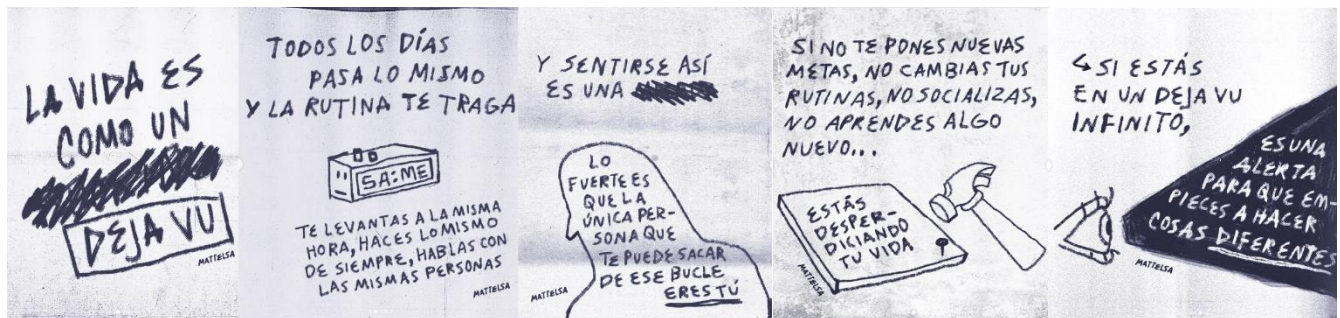 LA VIDA ES
COMO UN
DEJA VU
MATTELSA
TODOS LOS DÍAS
PASA LO MISMO
Y LA RUTINA TE TRAGA
SA:ME
TE LEVANTAS A LA MISMA
HORA, HACES LO MISMO
DE SIEMPRE, HABLAS CON
LAS MISMAS PERSONAS
MATTELSA
Y SENTIRSE ASÍ
ES UNA
LO
FUERTE ES
QUE LA
ÚNICA PER-
SONA QUE
TE PUEDE SACAR
DE ESE BUCLE
ERES TÚ
MATTELSA
SI NO TE PONES NUEVAS
METAS, NO CAMBIAS TUS
RUTINAS, NO SOCIALIZAS,
NO APRENDES ALGO
NUEVO...
ESTÁS
DESPER-
DICIANDO
TU VIDA
MATTELSA
↳ SI ESTÁS
EN UN DEJA VU
INFINITO,
ES UNA
ALERTA
PARA QUE EM-
PIECES A HACER
COSAS DIFERENTES
MATTELSA